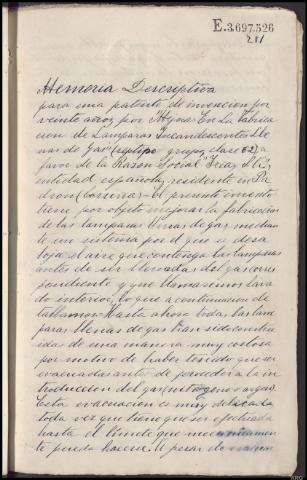 E.3.697.526
211
Memoria Descriptiva
para una patente de invencion por
veinte años por "Mejoras En La Fabrica
cion de Lamparas Incandescentes Lle
nas de Gas" (septimo grupo, clase 62) a
favor de la Razon Social "Frias, S
entidad española, residente en Pa
dron (Coruña) - El presente invento
tiene por objeto mejorar la fabricacion
de las lamparas llenas de gas median
te un sistema por el que se desa
loja el aire que contenga la lampara
antes de ser llenadas del gas corres
pondiente y que llamaremos lava
do interior, lo que a continuacion de
tallamos. Hasta ahora todas las lam
paras llenas de gas han sido construi
das de una manera muy costosa
por motivo de haber tenido que ser
evacuadas antes de proceder a la in
troduccion del gas (nitrogeno o argon).
Esta evacuacion es muy delicada
toda vez que tiene que ser efectuada
hasta el limite que mecanicamen
te pueda hacerse. A pesar de